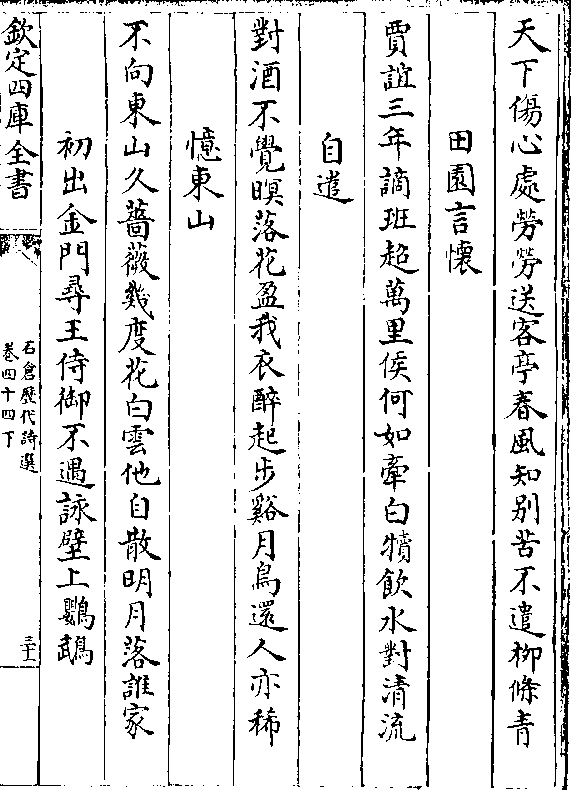 天下傷心處勞勞送客亭春風知别苦不遣栁條青
田園言懷
賈誼三年謫班超萬里侯何如牽白犢飲水對清流
自遣
對酒不覺暝落花盈我衣醉起步谿月鳥還人亦稀
憶東山
不向東山久薔薇幾度花白雲他自散明月落誰家
初出金門尋王侍御不遇詠壁上鸚鵡
欽定四庫全書
石倉歷代詩選
卷四十四下
三十一